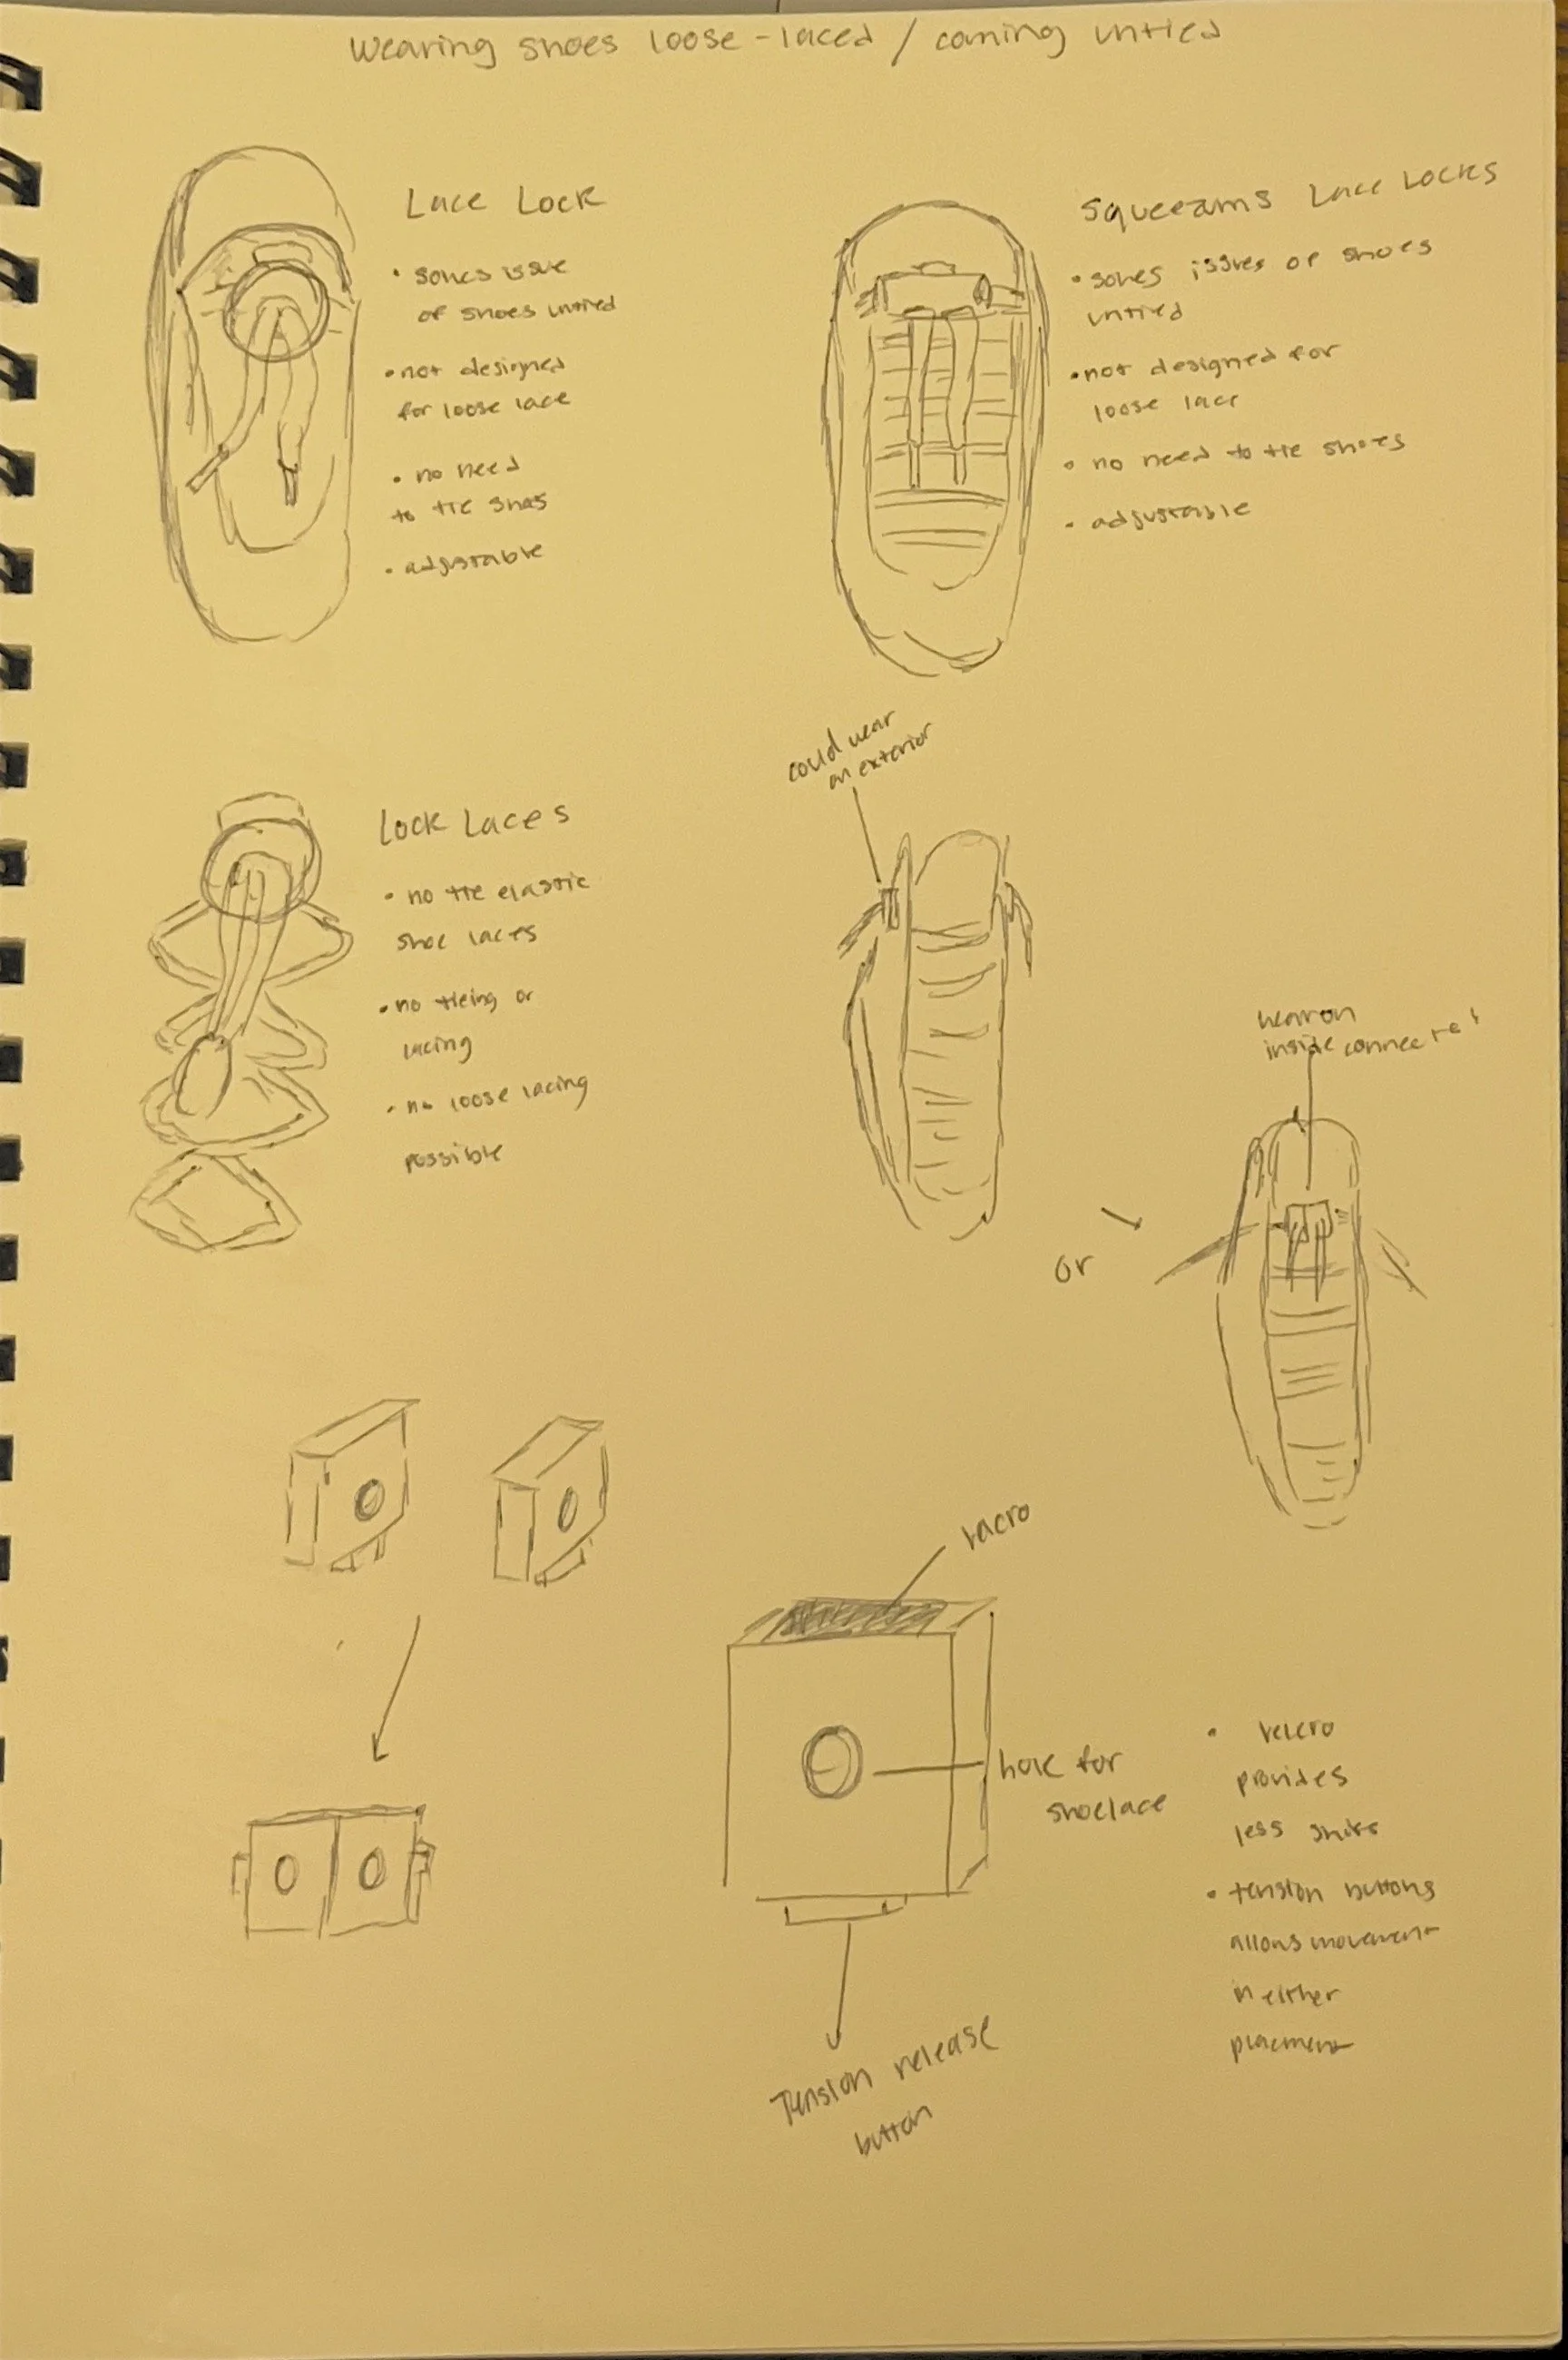 Wearing shoes loose-laced / coming untied
Lace Lock
• solves issue
of shoes untied
• not designed
for loose lace
• no need
to tie shoes
• adjustable
Squeeams Lace Locks
• solves issues of shoes
untied
• not designed for
loose lace
• no need to tie shoes
• adjustable
Lock Laces
• no tie elastic
shoe laces
• no tieing or
lacing
• no loose lacing
possible
could wear
on exterior
or
wear on
inside connected
velcro
hole for
shoelace
Tension release
button
• velcro
provides
less shift
• tension buttons
allows movement
in either
placment